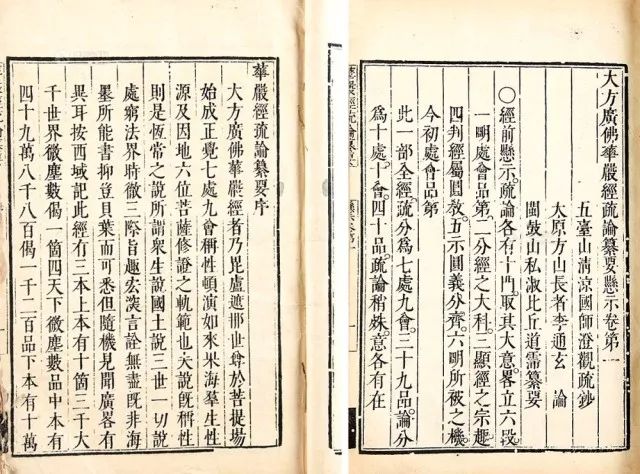 大方廣佛華嚴經疏論纂要懸示卷第一
五臺山清涼國師澄觀疏鈔
大原方山長者李通玄 論
閩鼓山私淑比丘道霈纂要
○經前懸示。疏論各有十門。取其大意。畧立六段。
一明處會品第。二分經之大科。三顯經之宗趣。
四判經屬圓教。五示圓義分齊。六明所被之機。
今初處會品第
此一部全經。疏分爲七處九會。三十九品。論分
爲十處十會。四十品。疏論稍殊。意各有在
華嚴經疏論纂要序
大方廣佛華嚴經者乃毘盧遮那世尊於菩提場
始成正覺七處九會稱性頓演如來果海羣生性
源及因地六位菩薩修證之軌範也夫說旣稱性
則是恆常之說所謂衆生說國土說三世一切說
處窮法界時徹三際旨趣宏深言詮無盡旣非海
墨所能書抑豈貝葉而可悉但隨機見聞廣畧有
異耳按西域記此經有三本上本有十箇三千大
千世界微塵數偈一箇四天下微塵數品中本有
四十九萬八千八百偈一千二百品下本有十萬